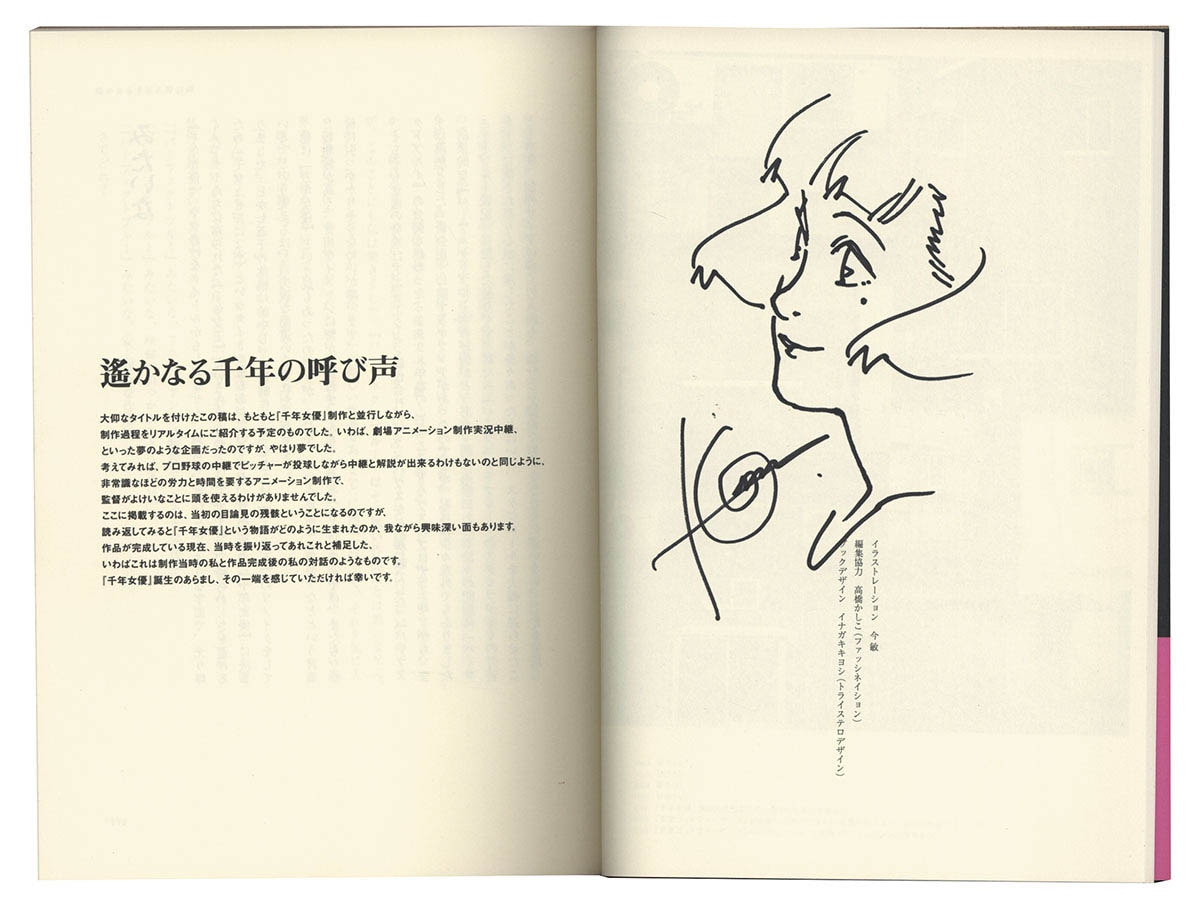 遙かなる千年の呼び声
大仰なタイトルを付けたこの稿は、もともと『千年女優』制作と並行しながら、
制作過程をリアルタイムにご紹介する予定のものでした。いわば、劇場アニメーション制作実況中継、
といった夢のような企画だったのですが、やはり夢でした。
考えてみれば、プロ野球の中継でピッチャーが投球しながら中継と解説が出来るわけもないのと同じように、
非常識なほどの労力と時間を要するアニメーション制作で、
監督がよけいなことに頭を使えるわけがありませんでした。
ここに掲載するのは、当初の目論見の残骸ということになるのですが、
読み返してみると『千年女優』という物語がどのように生まれたのか、我ながら興味深い面もあります。
作品が完成している現在、当時を振り返ってあれこれと補足した、
いわばこれは制作当時の私と作品完成後の私の対話のようなものです。
『千年女優』誕生のあらまし、その一端を感じていただければ幸いです。
イラストレーション　今 敏
編集協力　高橋かしこ（ファッシネイション）
ックデザイン　イナガキキヨシ（トライステロデザイン）